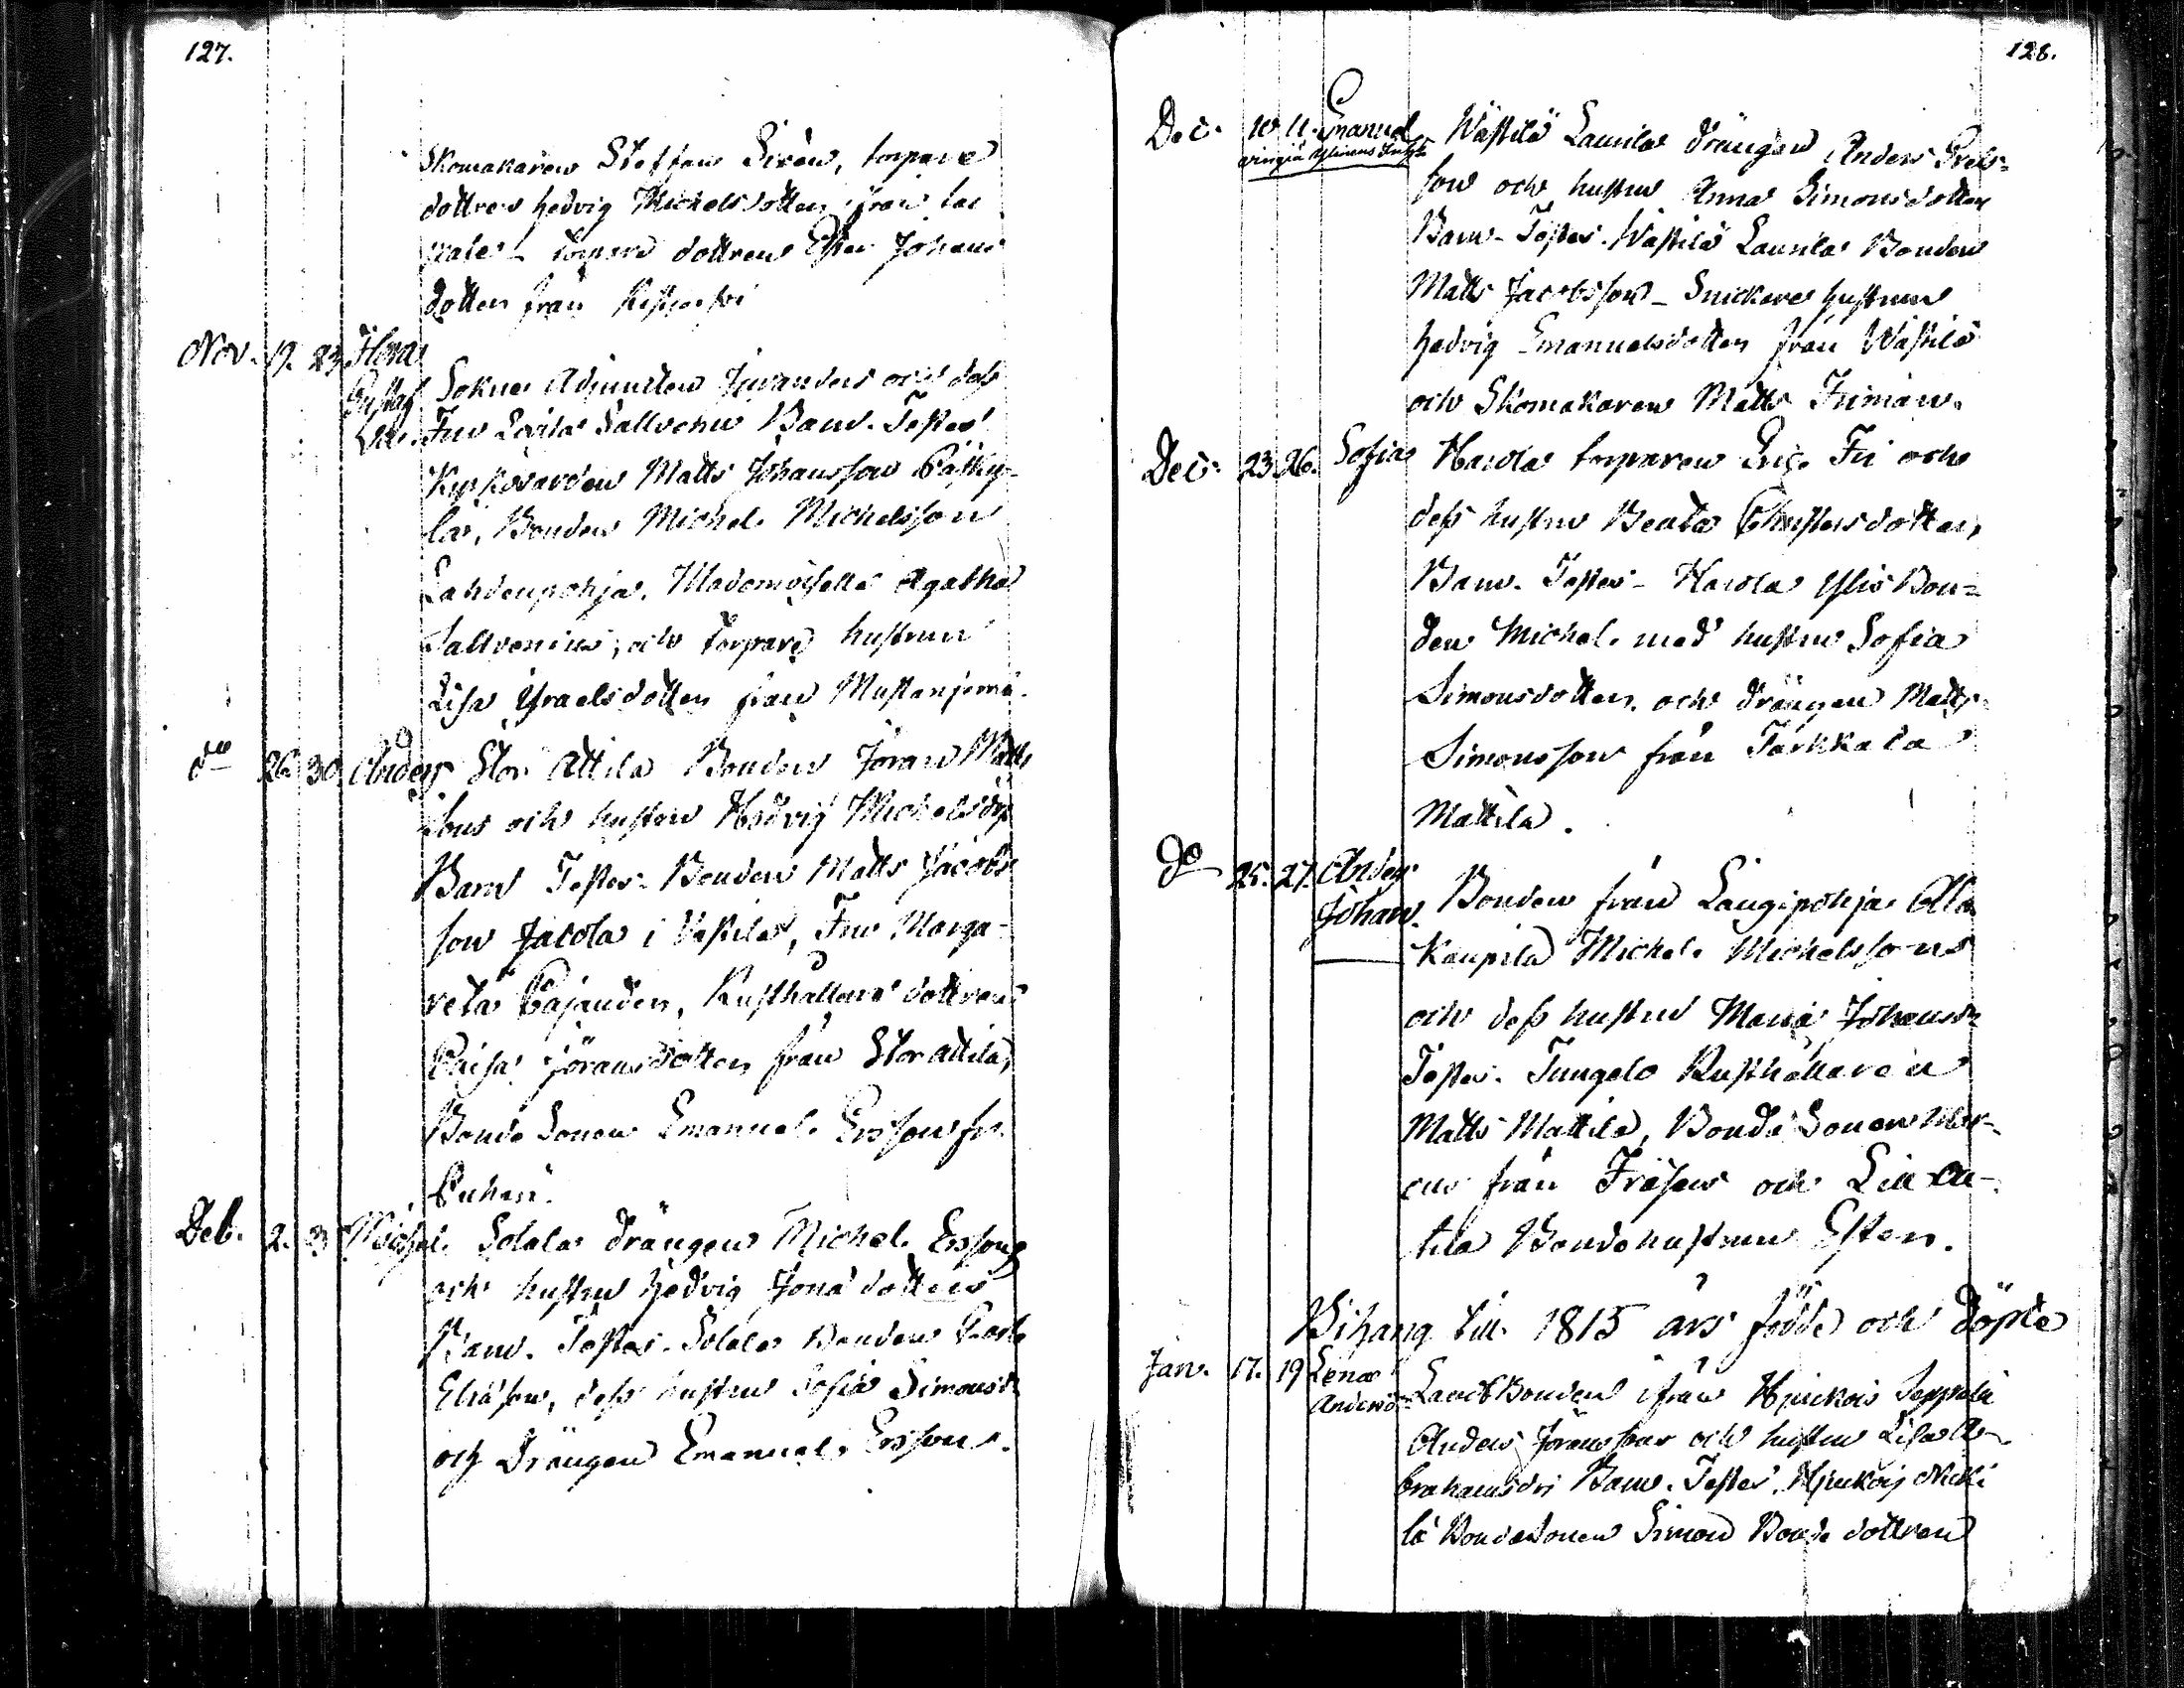 127.
Skomakaren Steffan Sirén, torpare
dottren hedvig Michelsdotter från
torpare dottren Ester Johans
dotter från
Nov. 19. 23. Flora
Gustaf Sokne Adjuncten och dess
Fru Lovisa Sallvenius Barn. Testes
Kyrkovärden Matts Johansson
la, Bonden Michel Michelsson
Lahdenpohja, Mademoiselle Agatha
Sallvenius, och torpare hustrun
Lisa Israelsdotter från
do 26. 30. Anders Stor Attila Bonden Jöran Matts
sons och hustru Hedvig Michelsdr
Barn Testes. Bonden Matts Jacobs
son Jacola i Västilä, Fru Marga-
reta Cajander, Rusthållare dottren
Caisa Jöransdotter från Stor Attila,
Bonde Sonen Emanuel Ersson fr.
Deb. 2. 3 Michel Solala drängen Michel Erssons
och hustru hedvig Jona dotters
Barn. Testes. Solala Bonden
Eliasson, dess hustru Sofia Simonsdr
och Drängen Emanuel Ersson.
128.
Dec. 10. 11. Emanuel Wästilä Laurila drängen Anders
son och hustru Anna Simonsdotter
Barn. Testes. Wästilä Laurila Bonden
Matts Jacobsson - Snickare hustrun
hedvig Emanuelsdotter från Wästilä
och Skomakaren Matts Friman.
Dec. 23. 26. Sofia Harola torparen Eric Fri och
dess hustru Beata Christersdotter,
Barn. Testes - Harola Ylis Bon=
den Michel med hustru Sofia
Simonsdotter och drängen Matts
Simonsson från Tarkkala
Mattila.
do 25. 27. Anders
Johan. Bonden från Laugipohja Ala
Kaupila Michel Michelssons
och dess hustru Maria Johansdr
Testes. Tungelo Rusthållaren
Matts Mattila, Bonde Sonen Mar-
cus från Fräsen och Lill At-
tila Bondehustrun Ester.
Bihang till 1815 års födde och döpte
Jan. 17. 19 Lena
Andersdr Landbonden ifrån Hjukois Seppälä
Anders Jöransson och hustru Lisa A-
brahamsdrs Barn. Testes. Hjukois Nicki
lä Bondesonen Simon Bonde dottren